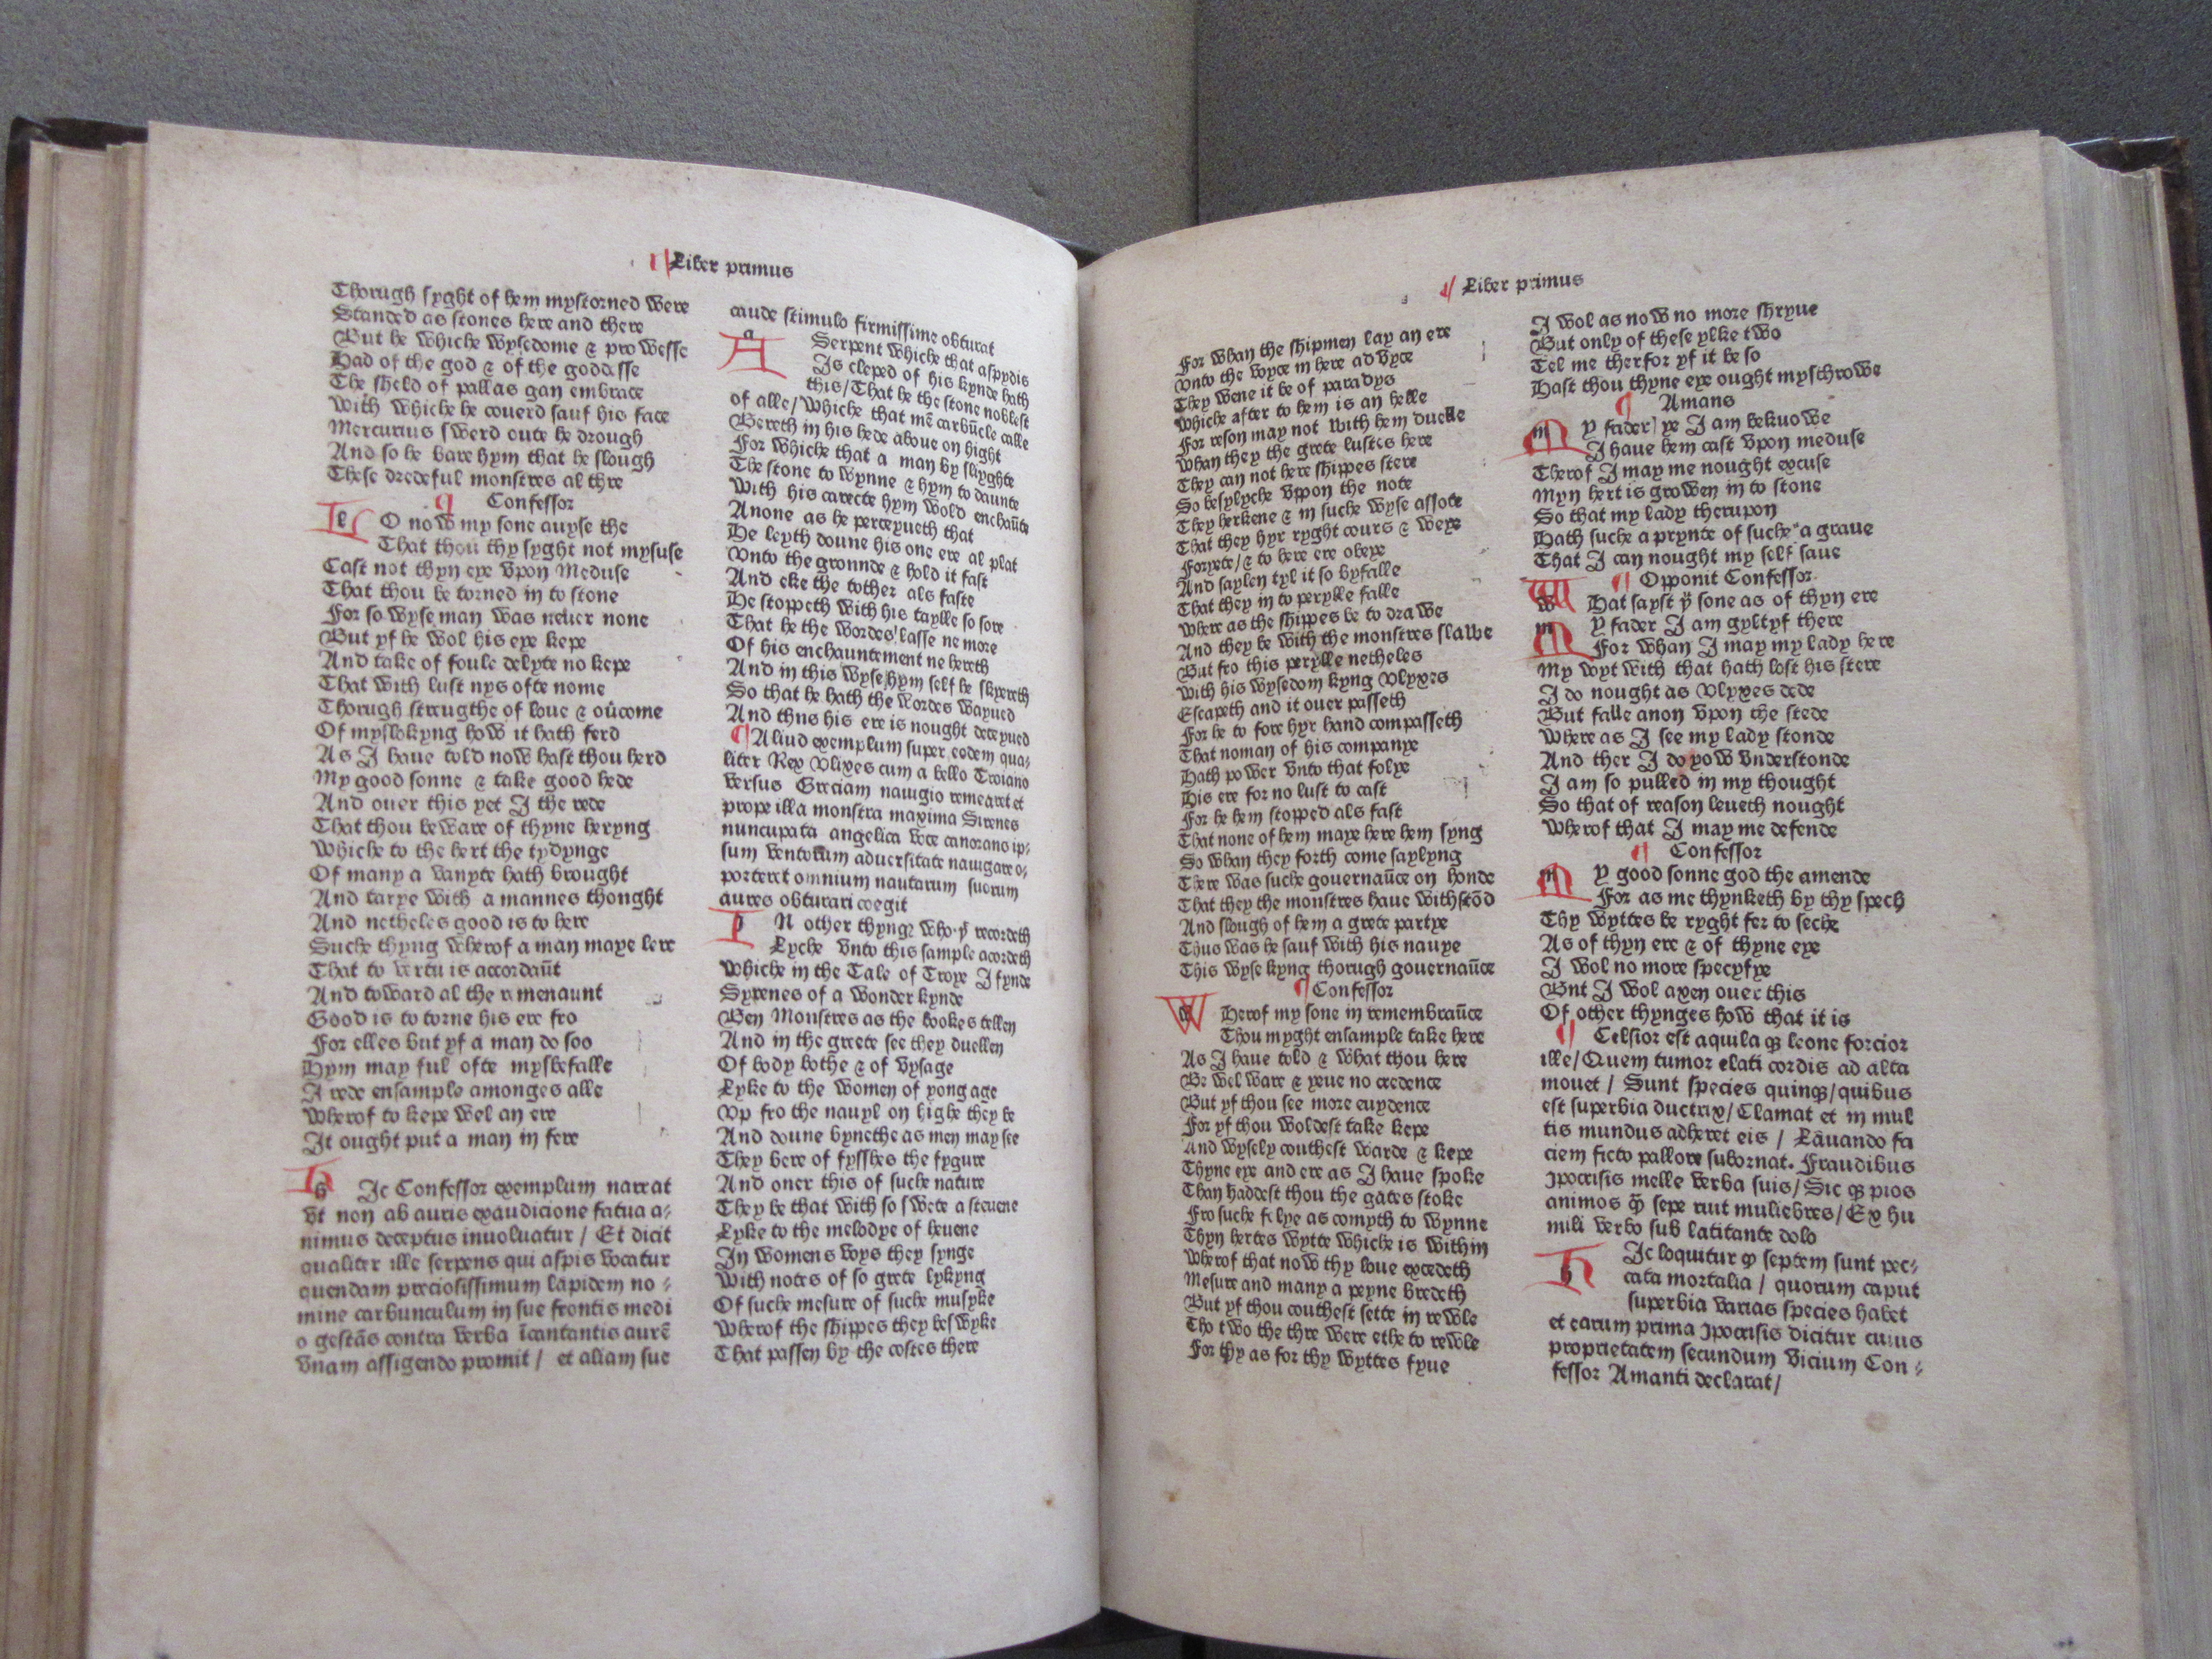 Liber primus
Thorugh syght of hem mystorned were
Standed as stones here and there
But he whiche wysedome & prowesse
Had of the god & of the goddesse
The sheld of pallas gan embrace
With whiche he couerd sauf his face
Mercurius swerd oute he drough
And so he bare hym that he slough
These dredeful monstres al thre
¶ Confessor
LO now my sone auyse the
That thou thy syght not mysuse
Cast not thyn eye vpon Meduse
That thou be torned in to stone
For so wyse man was neuer none
But yf he wol his eye kepe
And take of foule delyte no kepe
That with lust nys ofte nome
Thorugh strengthe of loue & oūcome
Of myslokyng how it hath ferd
As I haue told now hast thou herd
My good sonne & take good hede
And ouer this yet I the rede
That thou beware of thyne heryng
Whiche to the hert the tydynge
Of many a vanyte hath brought
And tarye with a mannes thonght
And netheles good is to here
Suche thyng wherof a man maye lere
That to vertu is accordaūt
And toward al the remenaunt
Good is to torne his ere fro
For elles but yf a man do soo
Hym may ful ofte mysbefalle
I rede ensample amonges alle
Wherof to kepe wel an ere
It ought put a man in fere
hIc Confessor exemplum narrat
vt non ab auris exaudicione fatua a⸗
nimus deceptus inuoluatur / Et dicit
qualiter ille serpens qui aspis vocatur
quendam preciosissimum lapidem no⸗
mine carbunculum in sue frontis medi
o gestās contra verba īcantantis aurē
vnam affigendo promit / et aliam sue
caude stimulo firmissime obturat
A Serpent whiche that aspydis
Is cleped of his kynde hath
this / That he the stone noblest
of alle / whiche that mē carbūcle calle
Bereth in his hede aboue on hight
For whiche that a man by slyghte
The stone to wynne & hym to daunte
With his carecte hym wold enchaūte
Anone as he perceyueth that
He leyth doune his one ere al plat
Vnto the gronnde & hold it fast
And eke the tother als faste
He stoppeth with his taylle so sore
That he the wordes lasse ne more
Of his enchauntement ne hereth
And in this wyse hym self he skyereth
So that he hath the wordes wayued
And thns his ere is nought deceyued
¶ Aliud exemplum super eodem qua⸗
liter Rex Vlixes cum a bello Troiano
versus Greciam nauigio remearet et
prope illa monstra maxima Sirenes
nuncupata angelica voce canorano ip⸗
sum ventorum aduersitate nauigare o⸗
porteret omnium nautarum suorum
aures obturari coegit
IN other thynge who yͭ recordeth
Lyche vnto this sample acordeth
Whiche in the Tale of Troye I fynde
Syrenes of a wonder kynde
Ben Monstres as the bookes tellen
And in the grete see they duellen
Of body bothe & of vysage
Lyke to the women of yong age
Vp fro the nauyl on highe they be
And doune bynethe as men may see
They bere of fysshes the fygure
And oner this of suche nature
They be that with so swete a steuene
Lyke to the melodye of heuene
In womens voys they synge
With notes of so grete lykyng
Of suche mesure of suche musyke
Wherof the shippes they beswyke
That passen by the costes there
¶ Liber primus
For whan the shipmen lay an ere
Vnto the voyce in here advyce
They wene it be of paradys
Whiche after to hem is an helle
For reson may not with hem duelle
Whan they the grete lustes here
They can not here shippes stere
So besylyche vppon the note
They herkene & in suche wyse assote
That they hyr ryght cours & weye
Foryete / & to here ere obeye
And saylen tyl it so byfalle
That they in to perylle falle
Where as the shippes be to drawe
And they be with the monstres slawe
But fro this perylle netheles
With his wysedom kyng Vlyxes
Escapeth and it ouer passeth
For he to fore hyr hand compasseth
That noman of his companye
Hath power vnto that folye
His ere for no lust to cast
For he hem stopped als fast
That none of hem maye here hem syng
So whan they forth come saylyng
There was suche gouernaūce on honde
That they the monstres haue withstōd
And slough of hem a grete partye
Thus was he sauf with his nauye
This wyse kyng thorugh gouernaūce
¶ Confessor
WHerof my sone in remembraūce
Thou myght ensample take here
As I haue told & what thou here
Be wel ware & yeue no credence
But yf thou see more euydence
For yf thou woldest take kepe
And wysely couthest warde & kepe
Thyne eye and ere as I haue spoke
Than haddest thou the gates stoke
Fro suche folye as comyth to wynne
Thyn hertes wytte whiche is within
Wherof that now thy loue excedeth
Mesure and many a peyne bredeth
But yf thou couthest sette in rewle
Tho two the thre were ethe to rewle
For thy as for thy wyttes fyue
I wol as now no more shryue
But only of these ylke two
Tel me therfor yf it be so
Hast thou thyne eye ought mysthrowe
¶ Amans
MY fader / ye I am beknowe
I haue hem cast vpon meduse
Therof I may me nought excuse
Myn hert is growen in to stone
So that my lady therupon
Hath suche a prynte of suche a graue
That I can nought my self saue
¶ Opponit Confessor
WHat sayst yͧ sone as of thyn ere
MY fader I am gyltyf there
For whan I may my lady here
My wyt with that hath lost his stere
I do nought as Vlyxes dede
But falle anon vpon the stede
Where as I see my lady stonde
And ther I do yow vnderstonde
I am so pulled in my thought
So that of reason leueth nought
Wherof that I may me defende
¶ Confessor
MY good sonne god the amende
For as me thynketh by thy spech
Thy wyttes be ryght fer to seche
As of thyn ere & of thyne eye
I wol no more specyfye
Bnt I wol axen ouer this
Of other thynges how that it is
¶ Celsior est aquila qꝫ leone forcior
ille / Quem tumor elati cordis ad alta
mouet / Sunt species quinqꝫ / quibus
est superbia ductrix / Clamat et in mul
tis mundus adheret eis / Lāuando fa
ciem ficto pallore subornat. Fraudibus
ypocrisis melle verba suis / Sic qꝫ pios
animos qͫ sepe ruit muliebres / Ex hu
mili verbo sub latitante dolo
hIc loquitur ꝙ septem sunt pec⸗
cata mortalia / quorum caput
superbia varias species habet
et earum prima ypocrisis dicitur cuius
proprietatem secundum vicium Con⸗
fessor Amanti declarat /